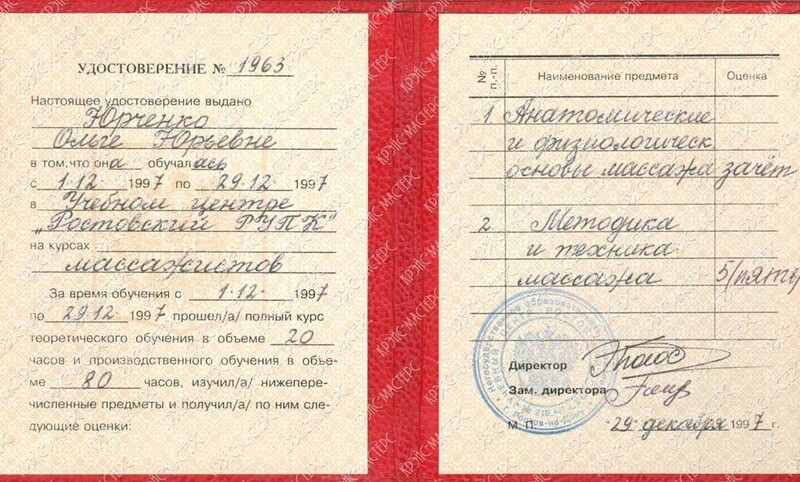 УДОСТОВЕРЕНИЕ № 1963
Настоящее удостоверение выдано
Юрченко
Ольге Юрьевне
в том, что она обучалась
с 1.12 1997 по 29.12 1997
в Учебном центре
„Ростовский РУПК"
на курсах
массажистов
За время обучения с 1.12. 1997
по 29.12. 1997 прошел/а/ полный курс
теоретического обучения в объеме 20
часов и производственного обучения в объе-
ме 80 часов, изучил/а/ нижепере-
численные предметы и получил/а/ по ним сле-
дующие оценки:
№ п.-п. Наименование предмета Оценка
1. Анатомические
и физиологическ.
основы массажа зачёт
2. Методика
и техника
массажа 5/пять/
Директор
Зам. директора
М. П. "29" декабря 1997 г.
КРЭЙС-МАСТЕРС